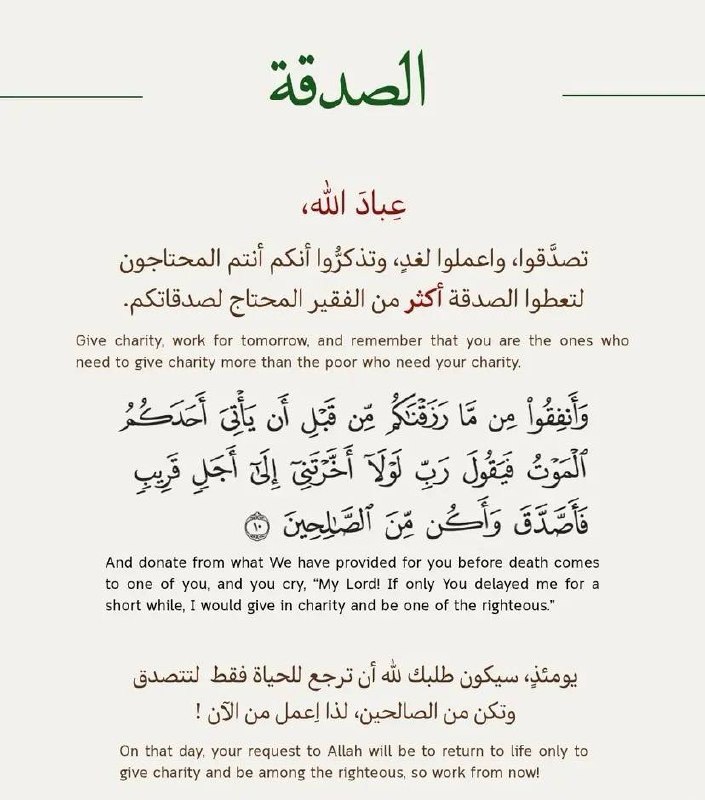 الصدقة
عِبادَ الله،
تصدَّقوا، واعملوا لغدٍ، وتذكرُّوا أنكم أنتم المحتاجون
لتعطوا الصدقة أكثر من الفقير المحتاج لصدقاتكم.
Give charity, work for tomorrow, and remember that you are the ones who
need to give charity more than the poor who need your charity.
وَأَنفِقُوا۟ مِن مَّا رَزَقْنَـٰكُم مِّن قَبْلِ أَن يَأْتِىَ أَحَدَكُمُ
ٱلْمَوْتُ فَيَقُولَ رَبِّ لَوْلَآ أَخَّرْتَنِىٓ إِلَىٰٓ أَجَلٍ قَرِيبٍ
فَأَصَّدَّقَ وَأَكُن مِّنَ ٱلصَّـٰلِحِينَ ١٠
And donate from what We have provided for you before death comes
to one of you, and you cry, “My Lord! If only You delayed me for a
short while, I would give in charity and be one of the righteous.”
يومئذٍ، سيكون طلبك لله أن ترجع للحياة فقط لتتصدق
وتكن من الصالحين، لذا اِعمل من الآن !
On that day, your request to Allah will be to return to life only to
give charity and be among the righteous, so work from now!